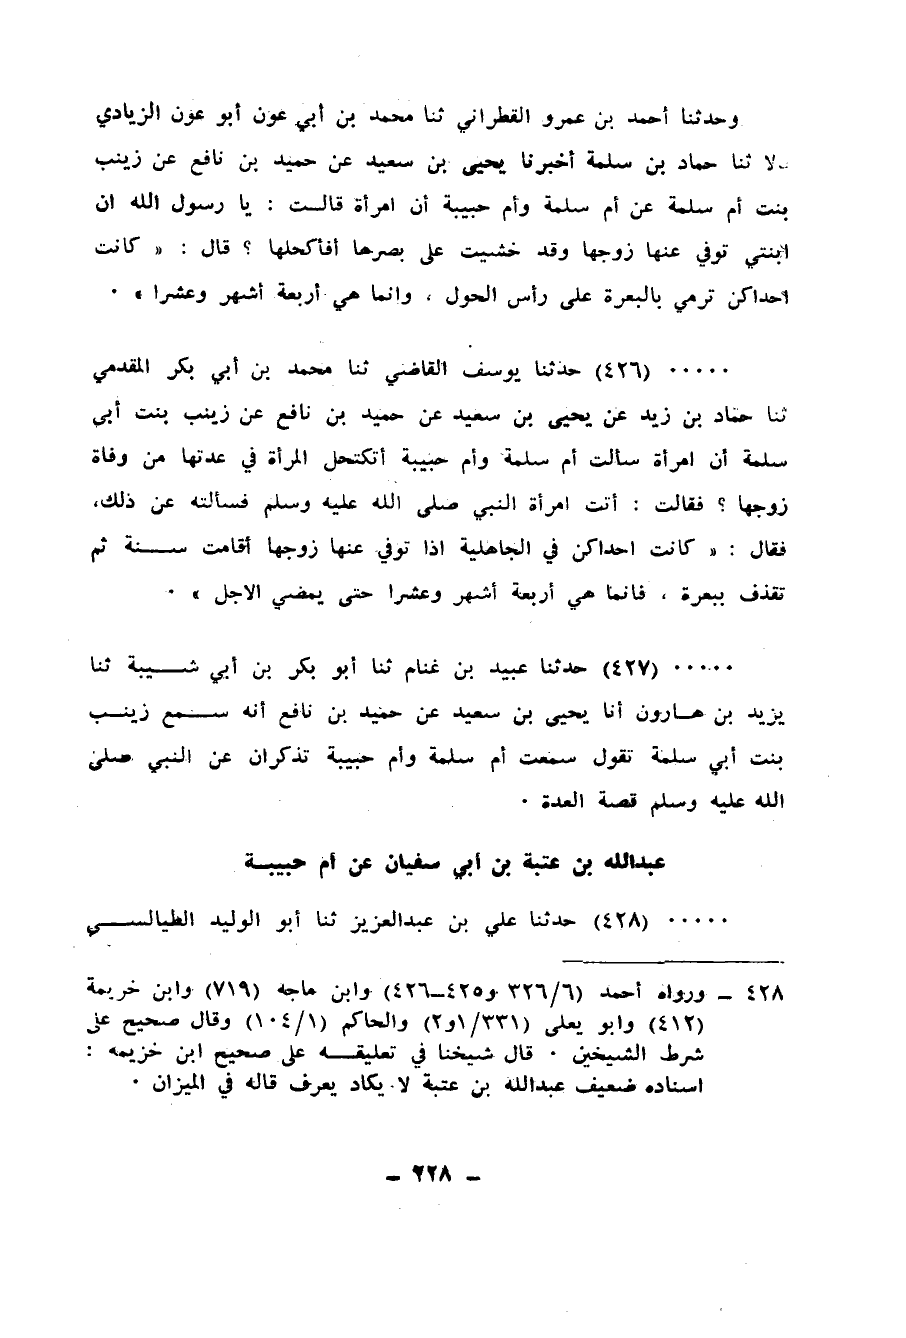 وحدثنا أحمد بن عمرو القطراني ثنا محمد بن أبي عون أبو عون الزيادي
لا ثنا حماد بن سلمة أخبرنا يحيى بن سعيد عن حميد بن نافع عن زينب
بنت أم سلمة عن أم سلمة وأم حبيبة أن امرأة قالت : يا رسول الله ان
ابنتي توفي عنها زوجها وقد خشيت على بصرها أفأكحلها ؟ قال : « كانت
احداكن ترمي بالبعرة على رأس الحول ، وانما هي أربعة أشهر وعشرا » ٠
٠٠٠٠٠ (٤٢٦) حدثنا يوسف القاضي ثنا محمد بن أبي بكر المقدمي
ثنا حماد بن زيد عن يحيى بن سعيد عن حميد بن نافع عن زينب بنت أبي
سلمة أن امرأة سألت أم سلمة وأم حبيبة أتكتحل المرأة في عدتها من وفاة
زوجها ؟ فقالت : أتت امرأة النبي صلى الله عليه وسلم فسألته عن ذلك،
فقال : « كانت احداكن في الجاهلية اذا توفي عنها زوجها أقامت ســـنة ثم
تقذف ببعرة ، فانما هي أربعة أشهر وعشرا حتى يمضي الاجل » ٠
٠٠٠٠٠ (٤٢٧) حدثنا عبيد بن غنام ثنا أبو بكر بن أبي شـــيبة ثنا
يزيد بن هــارون أنا يحيى بن سعيد عن حميد بن نافع أنه ســـمع زينـب
بنت أبي سلمة تقول سمعت أم سلمة وأم حبيبة تذكران عن النبي صلى
الله عليه وسلم قصة العدة ٠
عبدالله بن عتبة بن أبي سفيان عن أم حبيبـة
٠٠٠٠٠ (٤٢٨) حدثنا علي بن عبدالعزيز ثنا أبو الوليد الطيالســـي
٤٢٨ ـ ورواه أحمد (٣٢٦/٦ و٤٢٥ـ٤٢٦) وابن ماجه (٧١٩) وابن خريمة
(٤١٢) وابو يعلى (١/٣٣١و٢) والحاكم (١٠٤/١) وقال صحيح على
شرط الشيخين ٠ قال شيخنا في تعليقـــه على صحيح ابن خزيمه :
اسناده ضعيف عبدالله بن عتبة لا يكاد يعرف قاله في الميزان ٠
ـ ٢٢٨ ـ